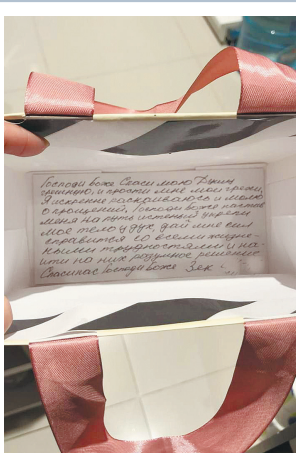 Господи боже Спаси мою Душу
грешную, и прости мне мои грехи,
Я искренне раскаиваюсь и молю
о прощений, Господи боже наставь
меня на путь истеный укрепи
мое тело у дух, дай мне сил
справится со всеми жизне-
ными трудностями и на-
йти на них разумное решение
Спаси нас Господи боже Зек.